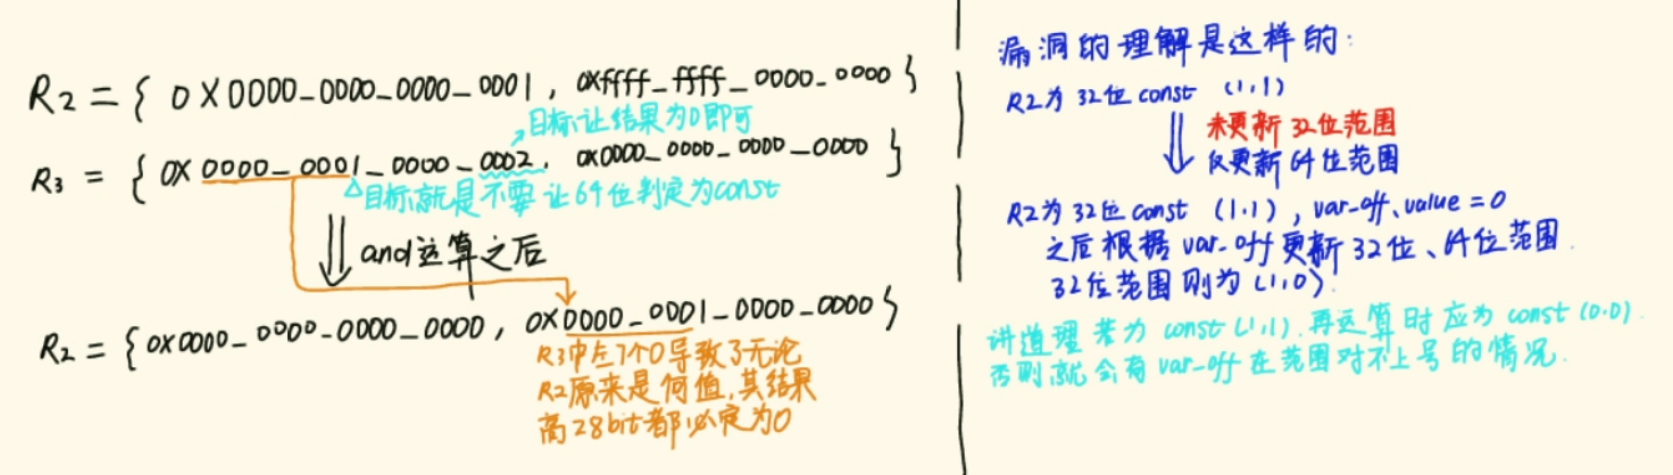 R2 = { 0X0000_0000_0000_0001, 0xffff_ffff_0000_0000 }
目标让结果为0即可
R3 = { 0X0000_0001_0000_0002, 0x0000_0000_0000_0000 }
△目标就是不要让64位判定为const
and运算之后
R2 = {0X0000_0000_0000_0000, 0X0000_0001_0000_0000 }
R3中左7个0导致了无论
R2原来是何值,其结果
高28bit都必定为0
漏洞的理解是这样的:
R2为32位const (1,1)
未更新32位范围
仅更新64位范围
R2为32位const (1,1), var_off.value = 0
之后根据var_off更新32位、64位范围.
32位范围则为(1,0)
讲道理若为const(1,1).再运算时应为const(0,0).
否则就会有var_off在范围对不上号的情况.